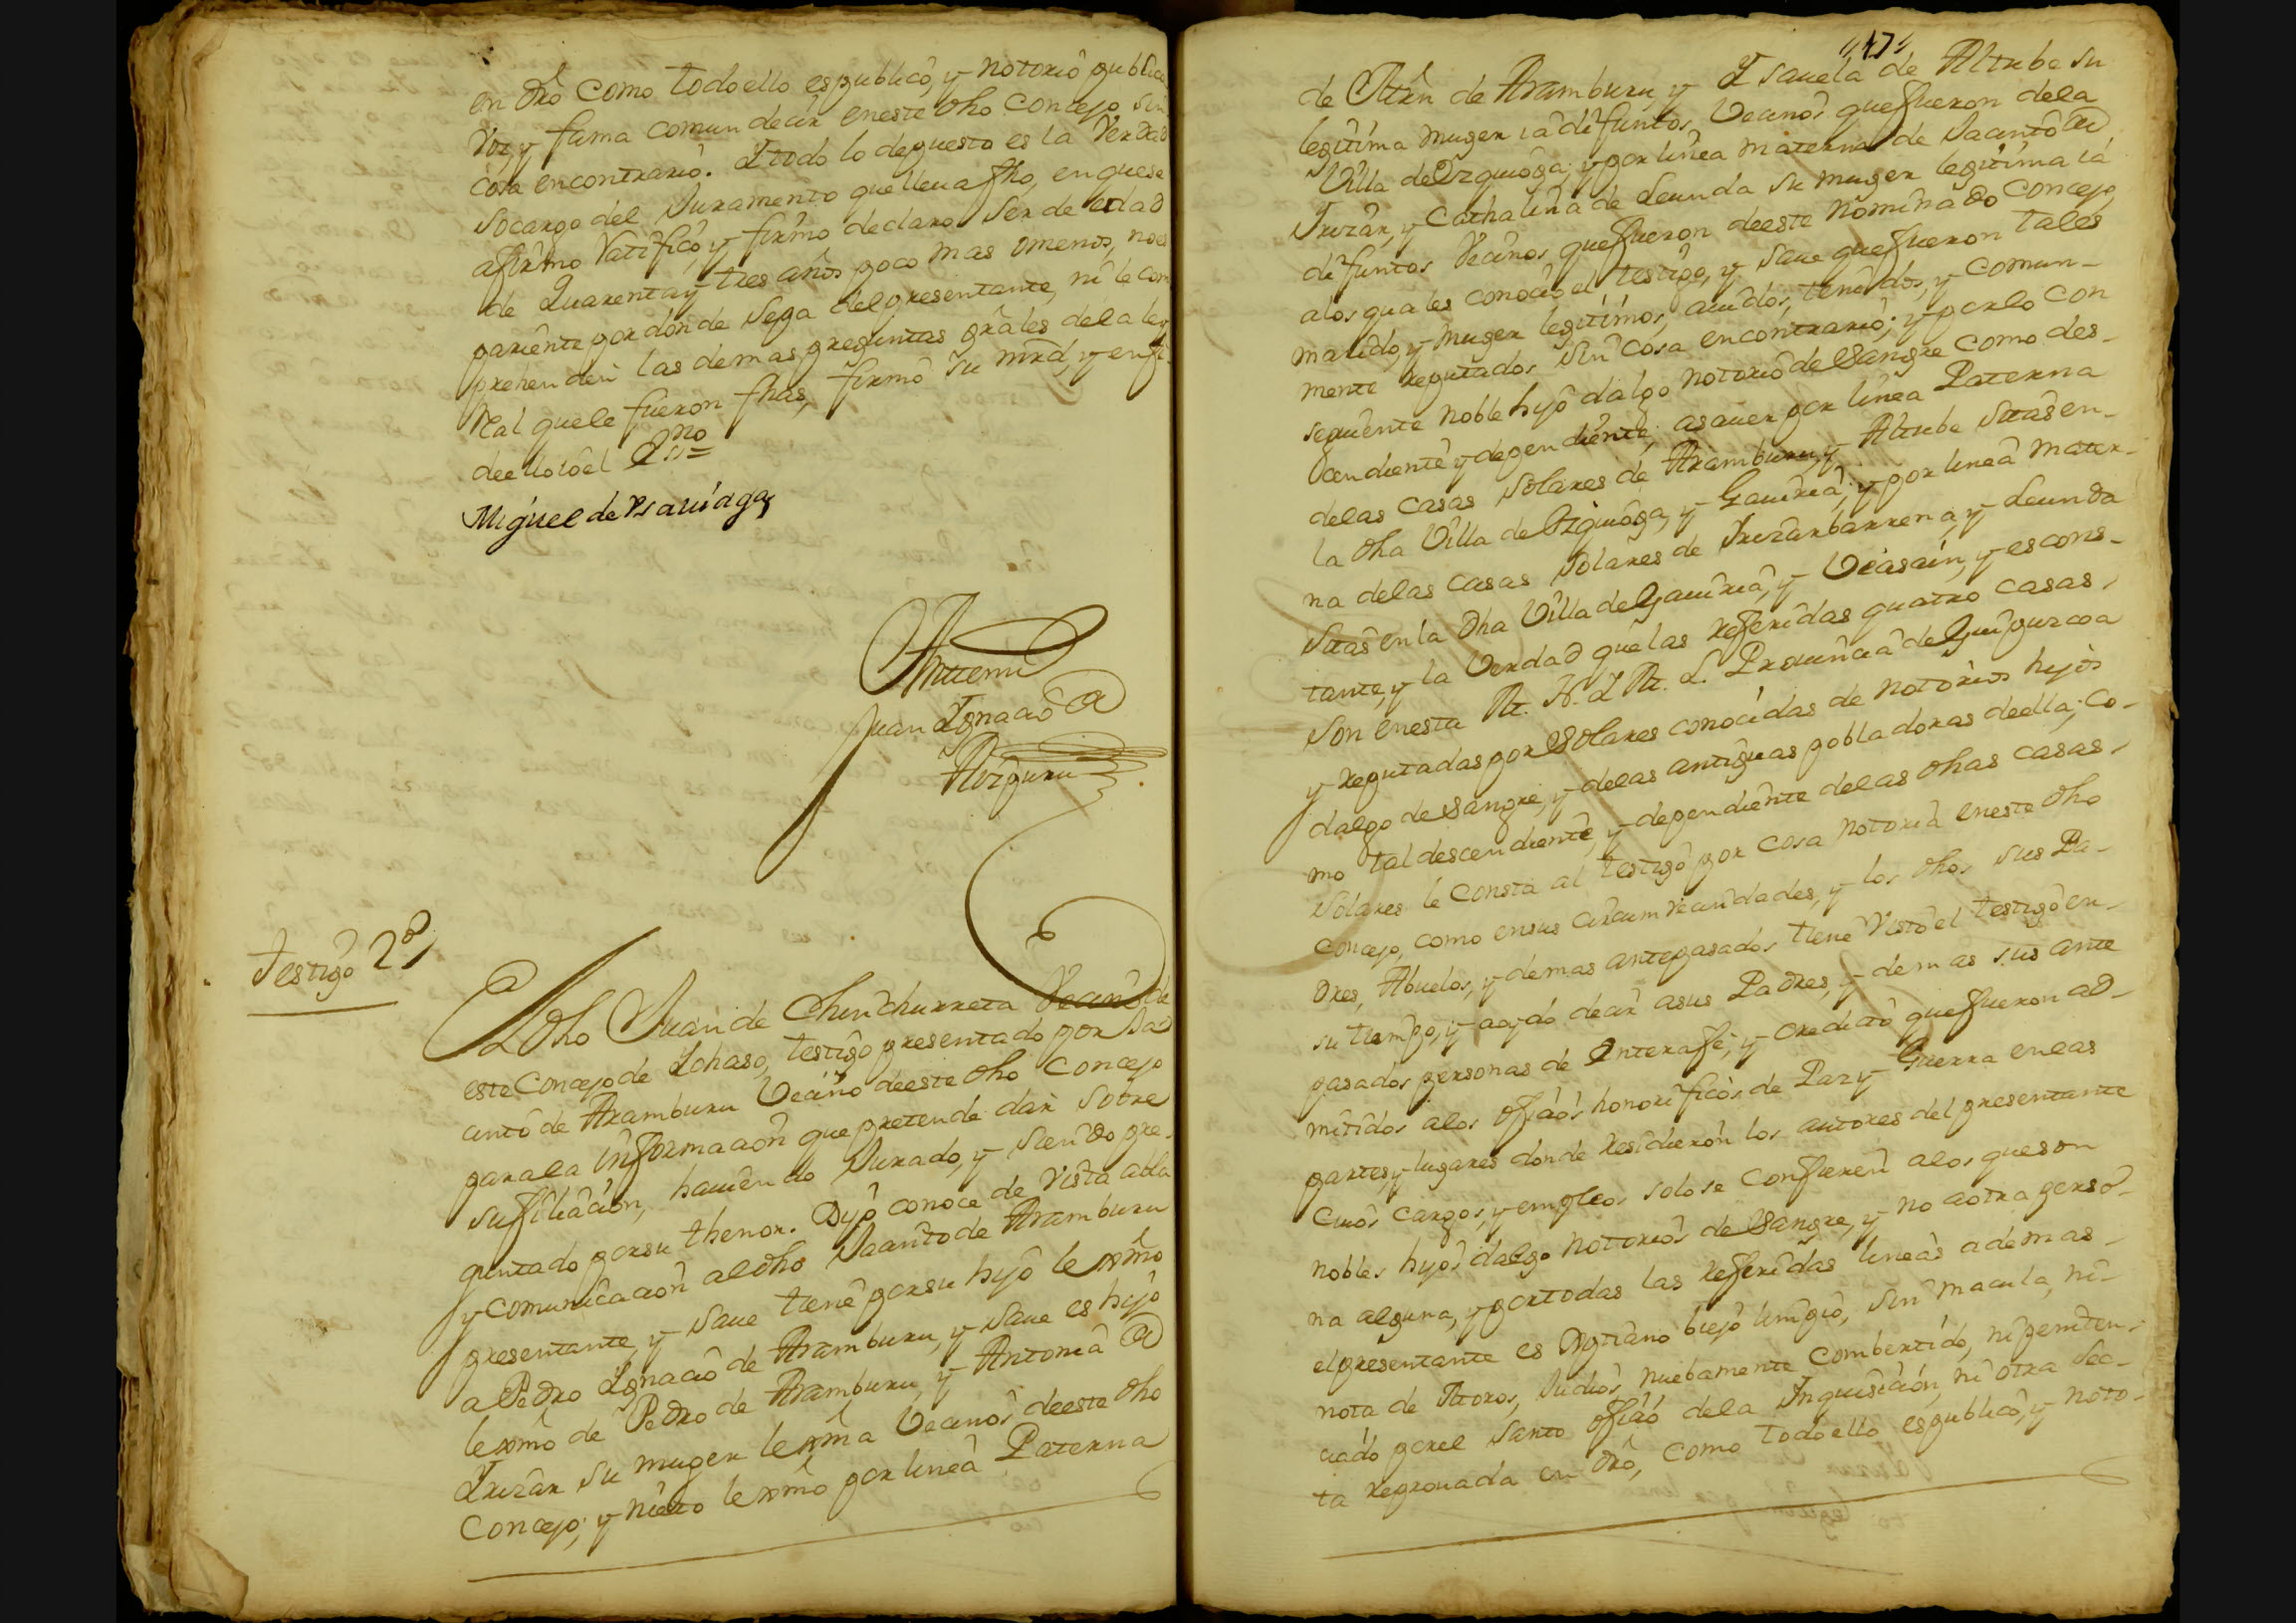 en dro como todo ello es publico, y notorio publica
voz, y fama comun decir en este dho Concejo sin
cosa en contrario. I todo lo depuesto es la Verdad
so cargo del Juramento que lleua fho, en que se
afirmo Ratifico, y firmo declaro ser de edad
de Quarenta y tres años poco mas omenos, no es
pariente por donde Sepa del presentante, ni le com
prehenden las demas preguntas grãles de la ley
Real que le fueron fhas, firmo su mrd, y en fe
de ello io el Essno=
Miguel de Ysauiaga
Antemi
Juan Ignacio de
Aizpuru
Testigo 2º,
El dho Juan de Chinchurreta Vecino de
este Concejo de Ichaso, testigo presentado por Ja
cinto de Aramburu Vecino de este dho Concejo
para la informacion que pretende dar sobre
su filiacion, hauiendo Jurado, y siendo pre-
guntado por su thenor. Dijo conoce de Vista abla
y comunicacion al dho Jacinto de Aramburu
presentante, y saue tiene por su hijo lexmo
a Pedro Ignacio de Aramburu, y saue es hijo
lexmo de Pedro de Aramburu, y Antonia de
Irizar su muger lexma Vecinos de este dho
Concejo; y nieto lexmo por linea Paterna
47
de Mrn de Aramburu, y Isauela de Altube su
legitima muger ia difuntos, Vecinos que fueron de la
Villa de Ezquioga; y por linea materna de Jacinto de
Irizar, y Cathalina de Leunda su muger legitima ia
difuntos Vecinos que fueron de este nominado Concejo,
a los quales conocio el testigo, y saue que fueron tales
marido, y muger legitimos, auidos, tenidos, y comun-
mente reputados sin cosa en contrario; y por lo con
siguiente noble hijo dalgo notorio de sangre como des-
cendiente y dependiente, asauer por linea Paterna
de las casas solares de Aramburu, y Altube sitas en
la dha Villa de Ezquioga, y Gauiria; y por linea mater-
na de las casas solares de Irizarbarrena, y Leunda
sitas en la dha Villa de Gauiria, y Veasain, y es cons-
tante, y la Verdad que las referidas quatro casas
son en esta M. N. Y M. L. Prouincia de Guipuzcoa
y reputadas por Solares conocidas de notorios hijos
dalgo de sangre, y de las antiguas pobladoras de ella; co-
mo tal descendiente, y dependiente de las dhas casas
solares le consta al testigo por cosa notoria en este dho
Concejo, como en sus circumvecindades, y los dhos sus Pa-
dres, Abuelos, y demas antepasados tiene Visto el testigo en
su tiempo, y a oydo decir asus Padres, y demas sus ante
pasados personas de Entera fe, y credito que fueron ad-
mitidos a los oficios honorificos de Paz y Guerra en las
partes, y lugares donde residieron los autores del presentante
cuios cargos, y empleos solo se confieren a los que son
nobles hijos dalgo notorios de Sangre, y no a otra perso-
na alguna, y por todas las referidas lineas ademas
el presentante es Xptiano biejo limpio, sin macula, ni
nota de Moros, Judios, nuebamente combertido, ni peniten-
ciado por el santo oficio de la Inquisicion, ni otra sec-
ta reprouada en dro, como todo ello es publico, y noto-